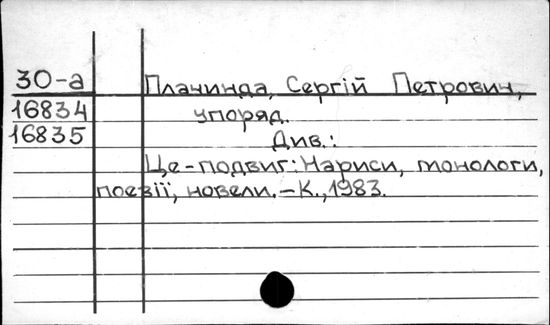 30-а Плачинда, Сергій Петрович,
16834 упоряд.
16835 Див.:
Це-подвиг: Нариси, монологи,
поезії, новели. - К., 1983.